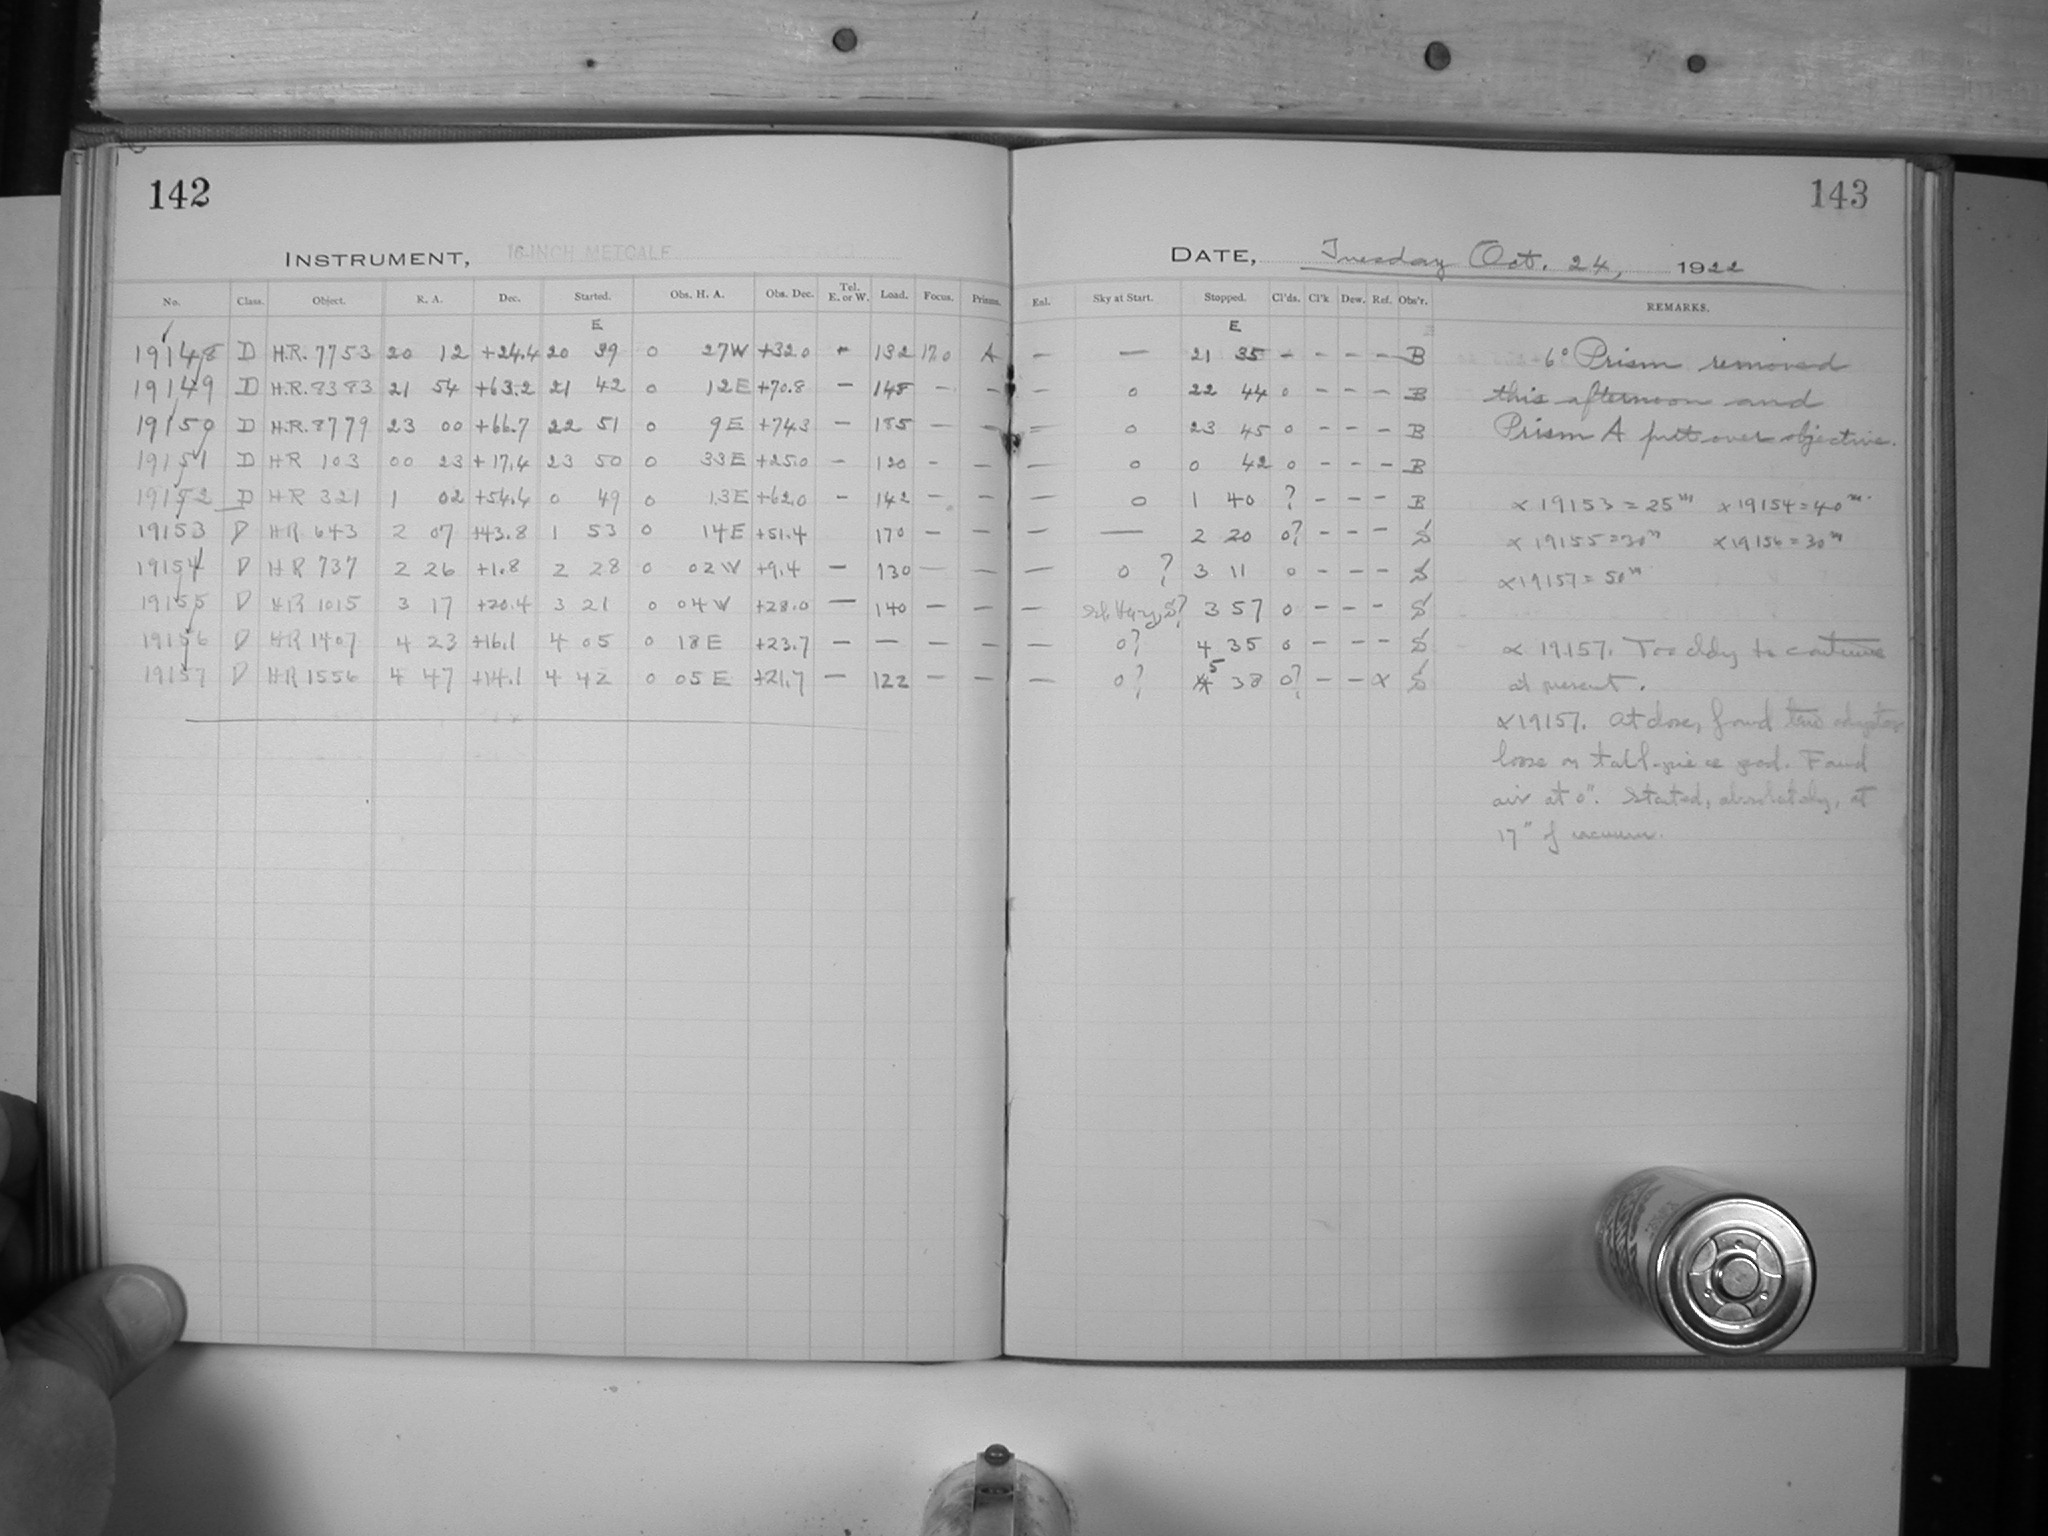 142
143
INSTRUMENT, 16-INCH METCALF
DATE, Tuesday Oct. 24, 1922
No. Class. Object. R. A. Dec. Started. Obs. H. A. Obs. Dec. Tel. E. or W. Load. Focus. Prisms. Enl. Sky at Start. Stopped. Cl'ds. Cl'k Dew. Ref. Obs'r. REMARKS.
E E
19148 D H.R. 7753 20 12 +24.4 20 39 0 27W +32.0 - 132 17.0 A — — 21 35 - - - - B 6° Prism removed
19149 D H.R. 8383 21 54 +63.2 21 42 0 12E +70.8 — 148 - - - 0 22 44 0 - - - B this afternoon and
19150 D H.R. 8779 23 00 +66.7 22 51 0 9E +74.3 — 185 - - — 0 23 45 0 - - - B Prism A put over objective.
19151 D HR 103 00 23 +17.4 23 50 0 33E +25.0 - 120 - - — 0 0 42 0 - - - B
19152 D HR 321 1 02 +54.4 0 49 0 13E +62.0 - 142 - - — 0 1 40 ? - - - B × 19153 = 25m × 19154 = 40m
19153 D HR 643 2 07 +43.8 1 53 0 14E +51.4 170 - - — — 2 20 0? - - - S × 19155 = 30m × 19156 = 30m
19154 D HR 737 2 26 +1.8 2 28 0 02W +9.4 — 130 — — — 0 ? 3 11 0 - - - S × 19157 = 50m
19155 D HR 1015 3 17 +20.4 3 21 0 04W +28.0 — 140 — — — ? 3 57 0 - - - S
19156 D HR 1407 4 23 +16.1 4 05 0 18E +23.7 — — — — — 0? 4 35 0 - - - S × 19157. Too cldy to continue
19157 D HR 1556 4 47 +14.1 4 42 0 05E +21.7 — 122 — — — 0? 5 38 0? - - × S at present.
×19157. At close, found two
loose on tail-piece Found
air at 0". Started, absolutely, at
17" of vacuum.